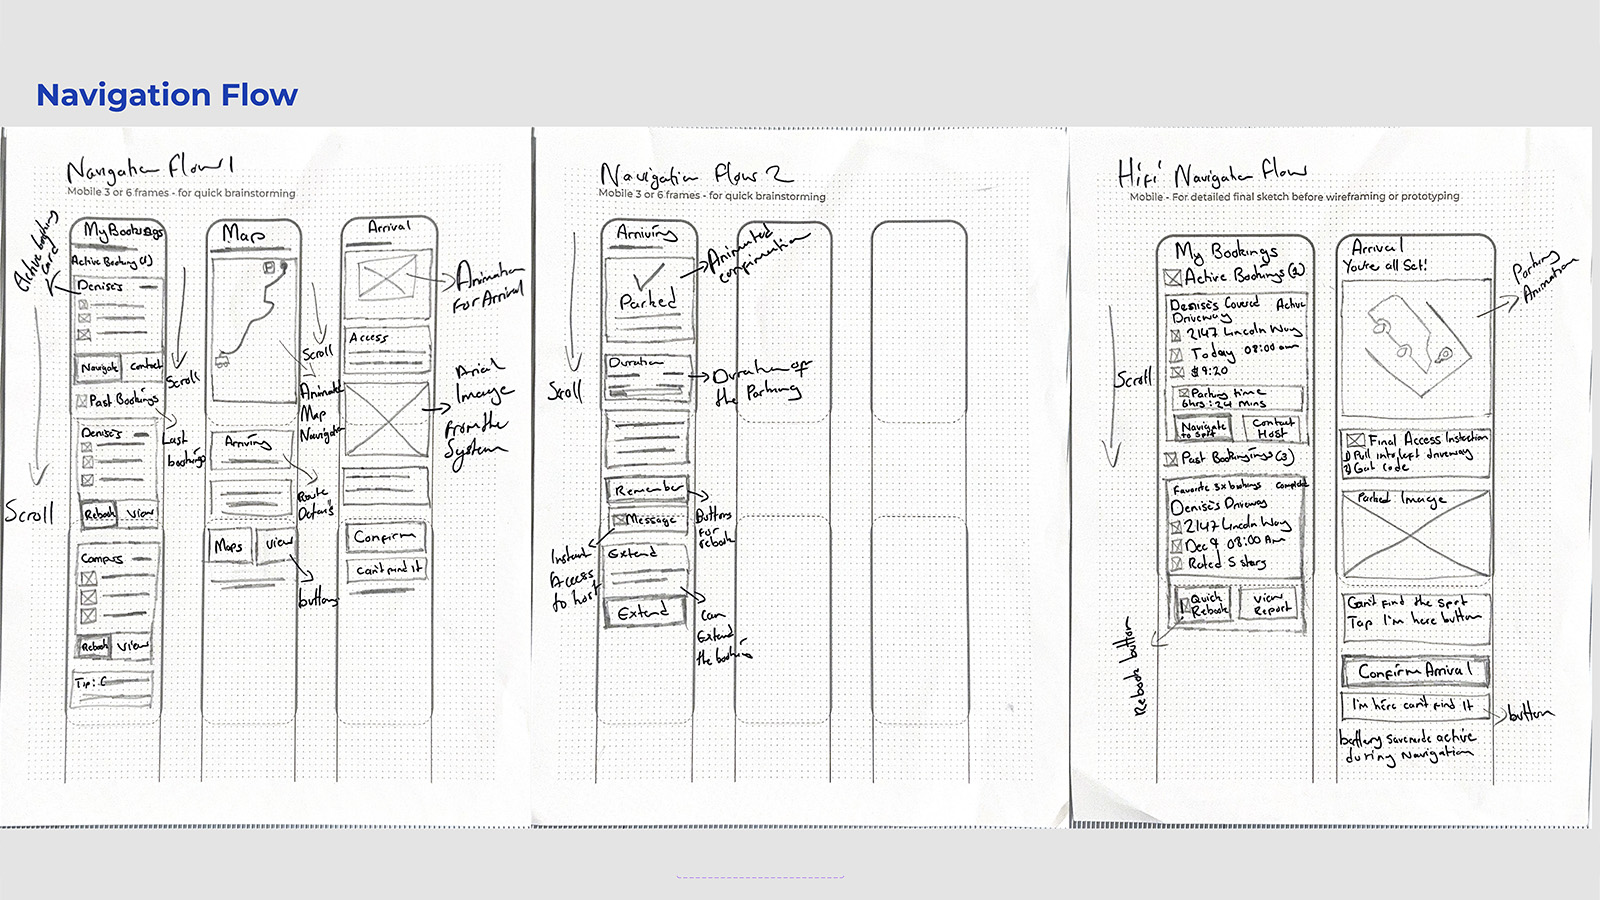 Navigation Flow
Navigation Flow 1
Mobile 3 or 6 frames - for quick brainstorming
Active booking card
My Bookings
Active Booking (1)
Denise's
Navigate
Contact
Past Bookings
Denise's
Rebook
View
Campus
Rebook
View
Tip:
Scroll
Scroll
Last bookings
Map
P
Scroll
Animated Map Navigation
Arriving
Route Details
Maps
View
buttons
Arrival
Animation
For Arrival
Access
Arial
Image
From the
System
Confirm
Can't find It
Navigation Flow 2
Mobile 3 or 6 frames - for quick brainstorming
Scroll
Arriving
Parked
Animated confirmation
Duration
Duration of
the Parking
Remember
Message
Buttons
For
rebook
Instant
Access
to host
Extend
Extend
Can
Extend
the booking
Hifi Navigation Flow
Mobile - For detailed final sketch before wireframing or prototyping
Scroll
My Bookings
Active Bookings
Denise's Covered Active
Driveway
2147 Lincoln Way
Today 08:00 am
$9.20
Parking time
6hrs : 24 mins
Navigate
to Spot
Contact
Host
Past Bookingings (3)
Favorite 5x bookings
Denise's Driveway
2147 Lincoln Way
Dec 9 08:00 Am
Rated 5 stars
Quick
Rebook
View
Report
Rebook button
Arrival
You're all Set!
Parking
Animation
Final Access Instection
1) Pull into left driveway
2) Gat code
Parked Image
Can't find the spot
Tap I'm here button
Confirm Arrival
I'm here can't find It
button
active
during Navigation